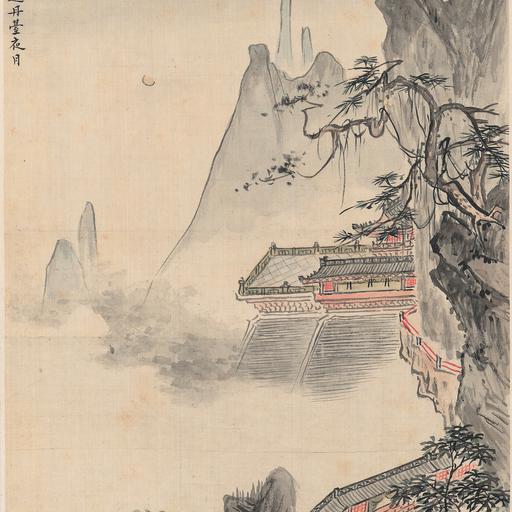 丹臺夜月